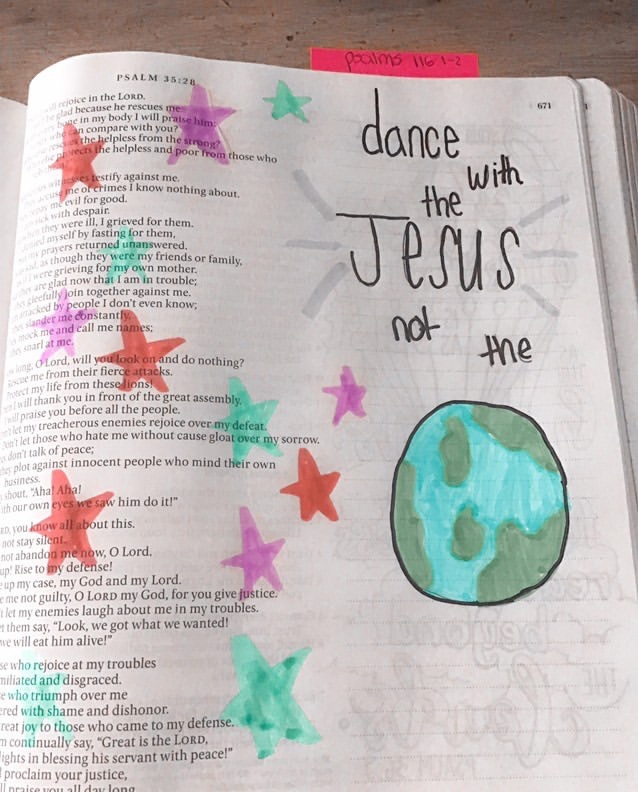 psalms 116:1-2
PSALM 35:28
671
rejoice in the LORD.
glad because he rescues me.
bone in my body I will praise him:
who can compare with you?
rescues the helpless from the strong?
protects the helpless and poor from those who
testify against me.
accuse me of crimes I know nothing about.
me evil for good.
sick with despair.
when they were ill, I grieved for them.
myself by fasting for them,
my prayers returned unanswered.
as though they were my friends or family,
I were grieving for my own mother.
are glad now that I am in trouble;
gleefully join together against me.
attacked by people I don't even know;
slander me constantly.
mock me and call me names;
snarl at me.
long, O Lord, will you look on and do nothing?
Rescue me from their fierce attacks.
Protect my life from these lions!
I will thank you in front of the great assembly.
will praise you before all the people.
let my treacherous enemies rejoice over my defeat.
Don't let those who hate me without cause gloat over my sorrow.
don't talk of peace;
they plot against innocent people who mind their own
business.
shout, "Aha! Aha!
With our own eyes we saw him do it!"
you know all about this.
not stay silent.
not abandon me now, O Lord.
up! Rise to my defense!
up my case, my God and my Lord.
me not guilty, O LORD my God, for you give justice.
let my enemies laugh about me in my troubles.
them say, "Look, we got what we wanted!
we will eat him alive!"
who rejoice at my troubles
and disgraced.
who triumph over me
with shame and dishonor.
great joy to those who came to my defense.
continually say, "Great is the LORD,
in blessing his servant with peace!"
proclaim your justice,
praise you all day long.
dance
with
the
Jesus
not
the